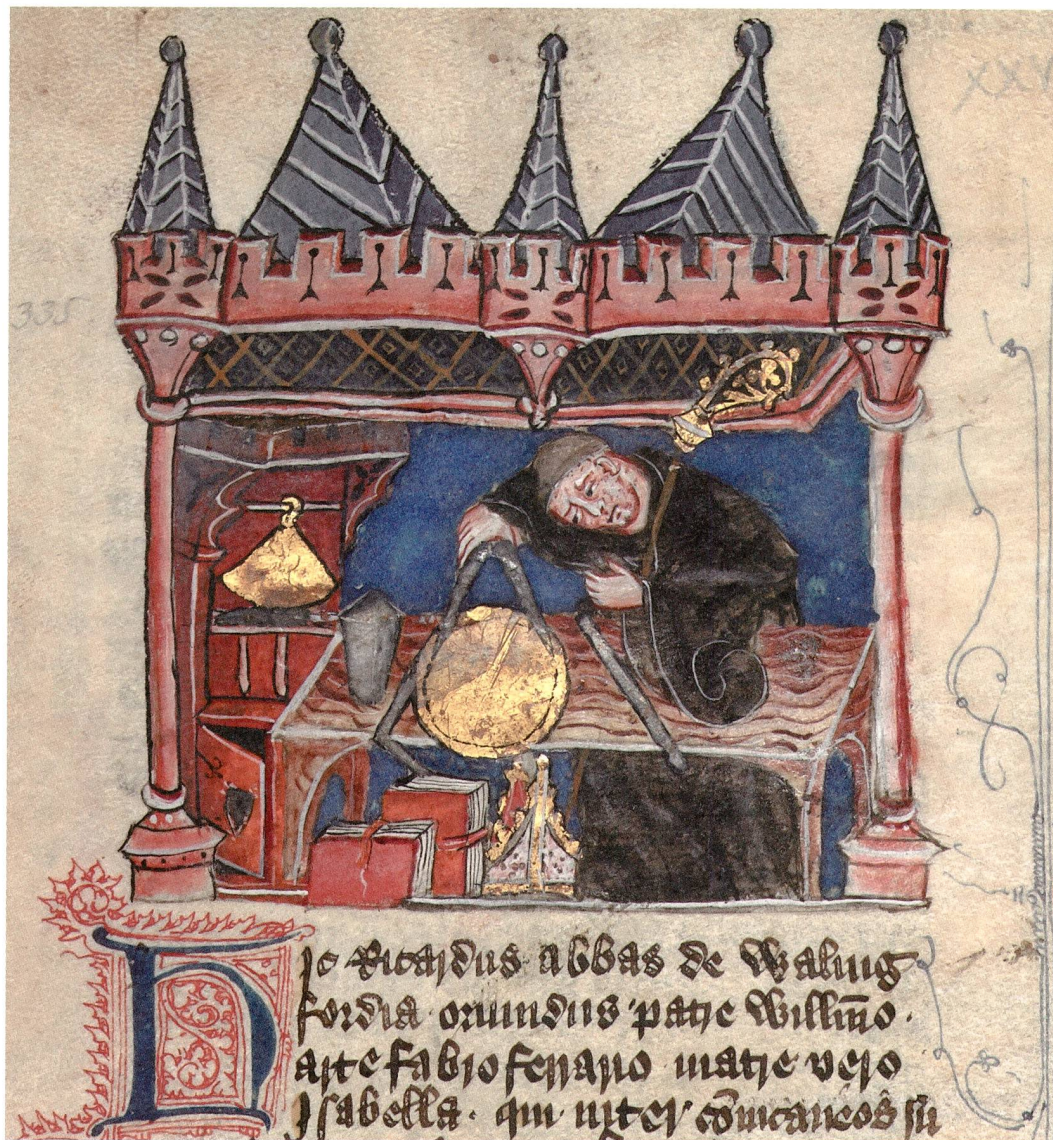 XXV
335
Hic Ricardus abbas de Waling
fordia oriundus patre Willm̄o.
arte fabro ferrario matre vero
Isabella. qui inter cōuicaneos su